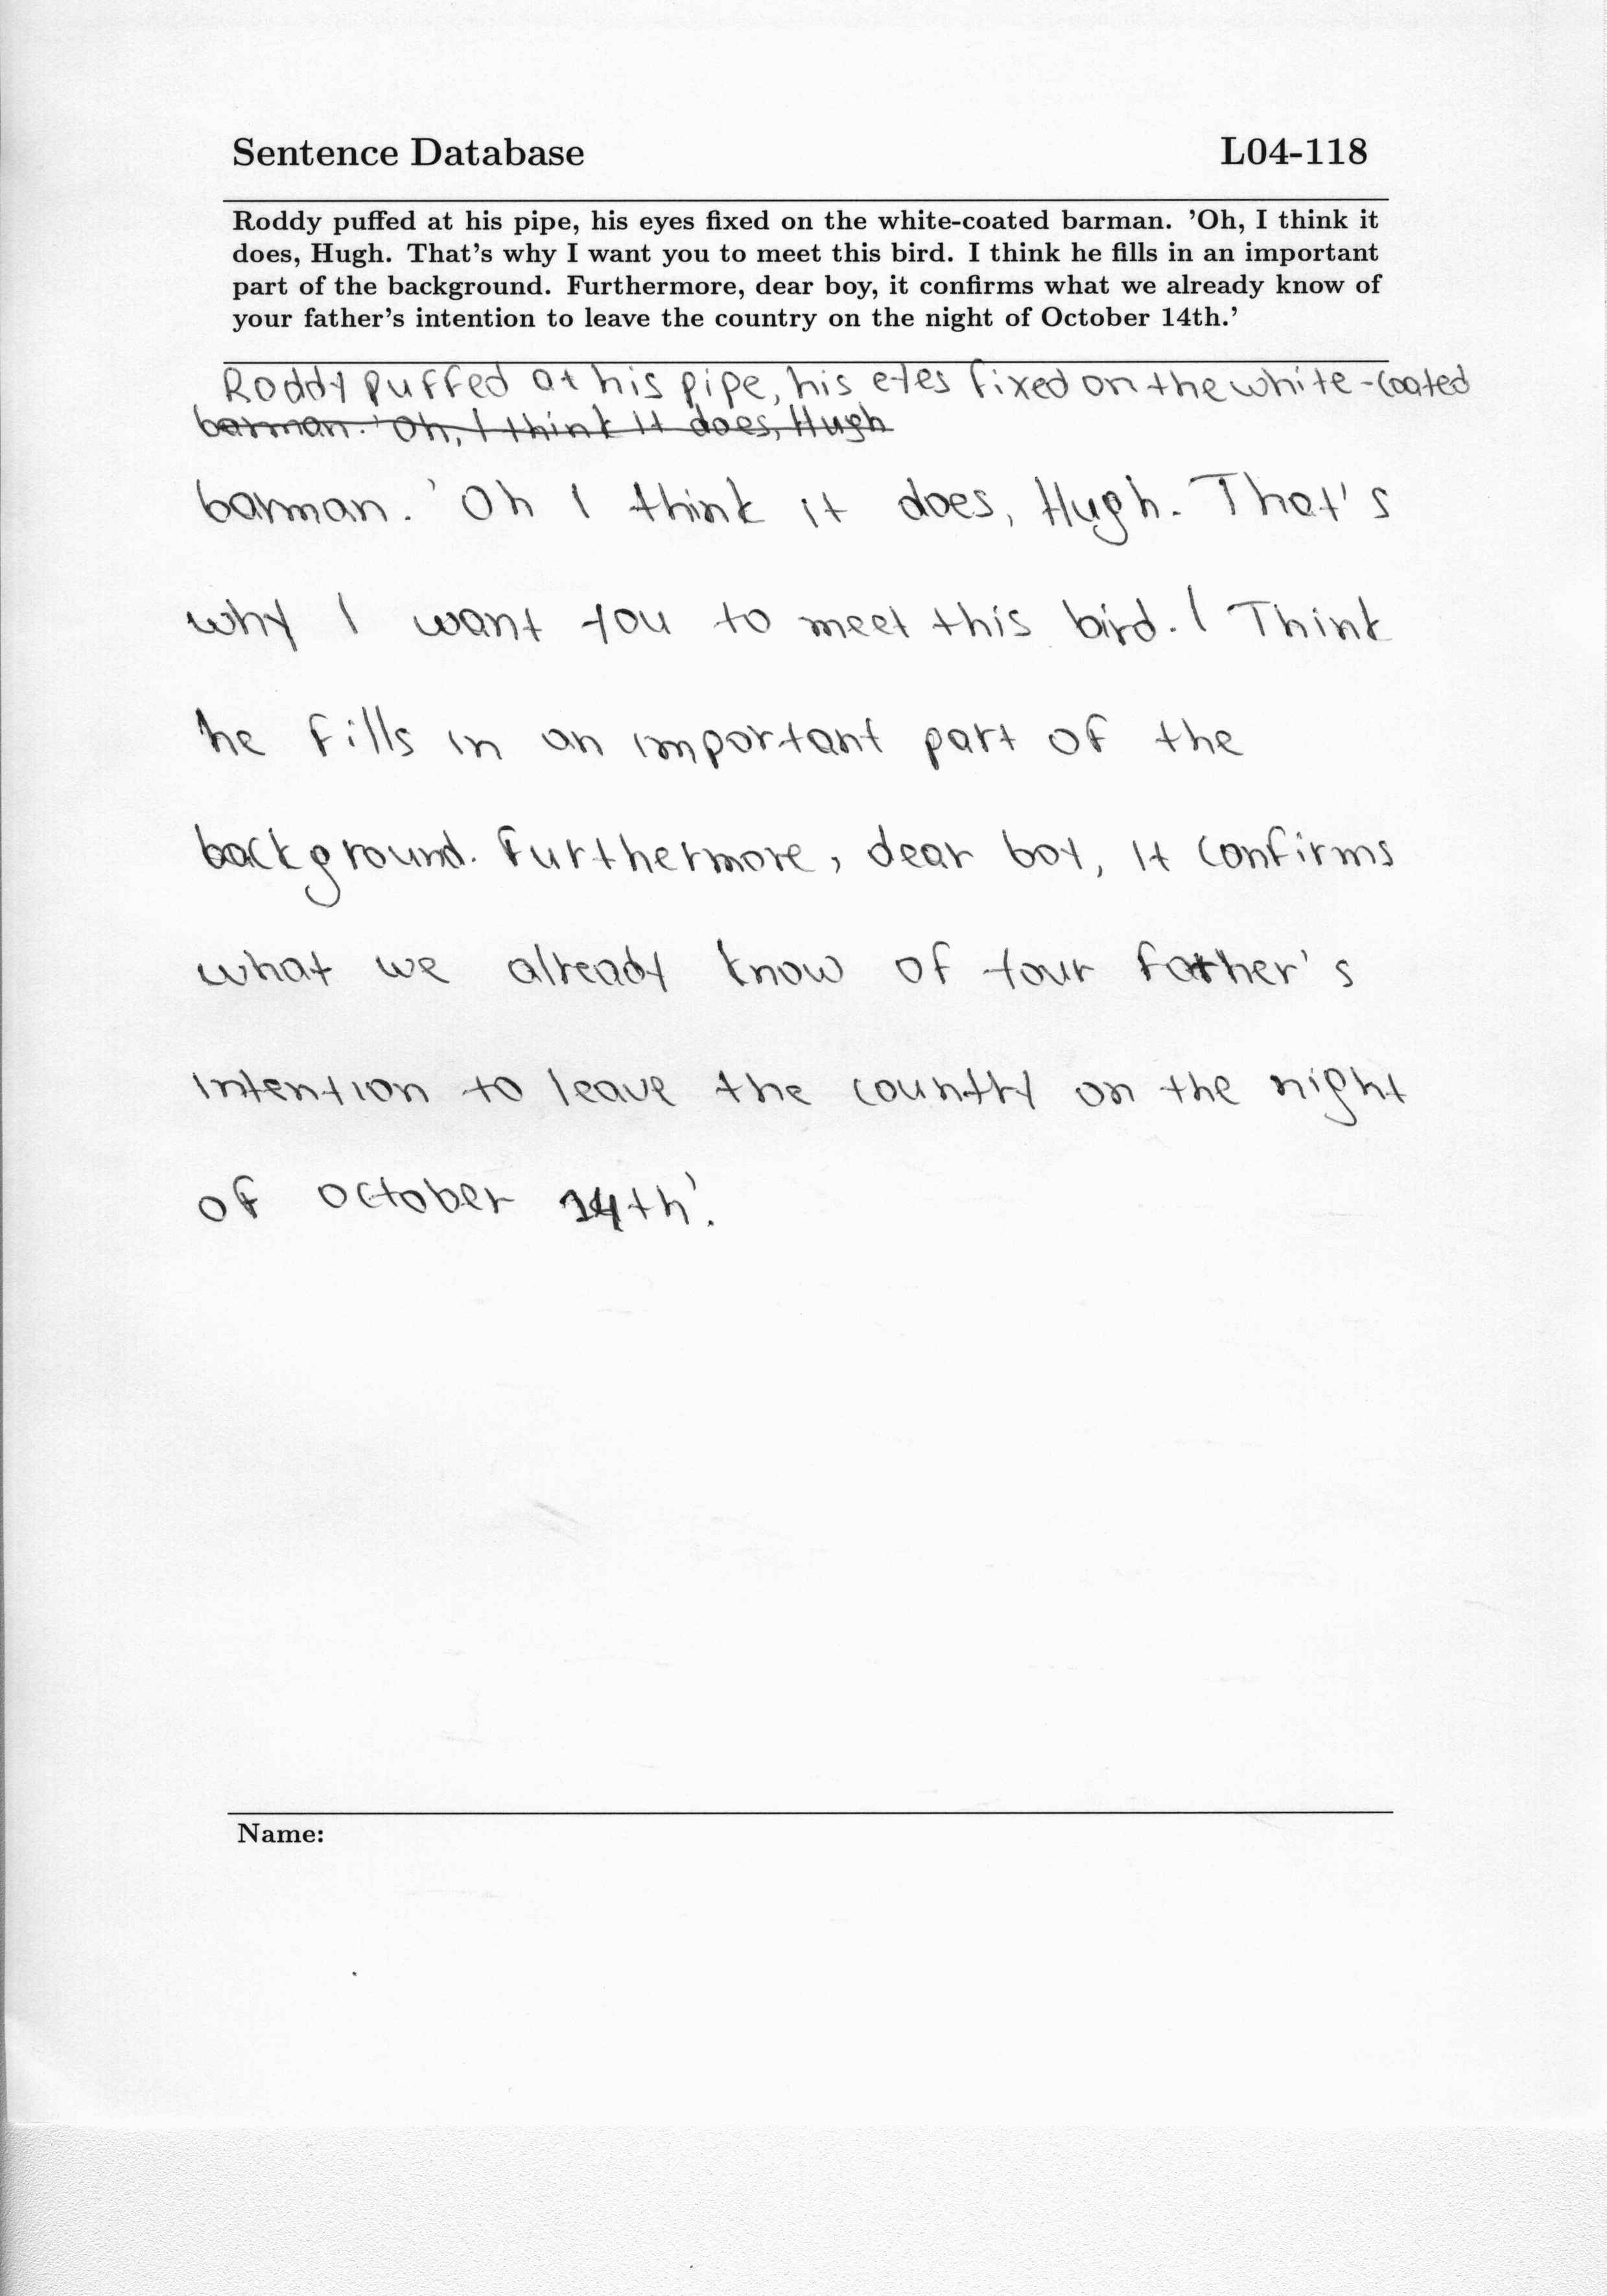 Sentence Database L04-118
Roddy puffed at his pipe, his eyes fixed on the white-coated barman. 'Oh, I think it
does, Hugh. That's why I want you to meet this bird. I think he fills in an important
part of the background. Furthermore, dear boy, it confirms what we already know of
your father's intention to leave the country on the night of October 14th.'
Roddy puffed at his pipe, his eyes fixed on the white-coated
barman. 'Oh, I think it does, Hugh
barman. 'Oh I think it does, Hugh. That's
why I want you to meet this bird. I Think
he fills in an important part of the
background. Furthermore, dear boy, it confirms
what we already know of your father's
intention to leave the country on the night
of october 14th'.
Name: